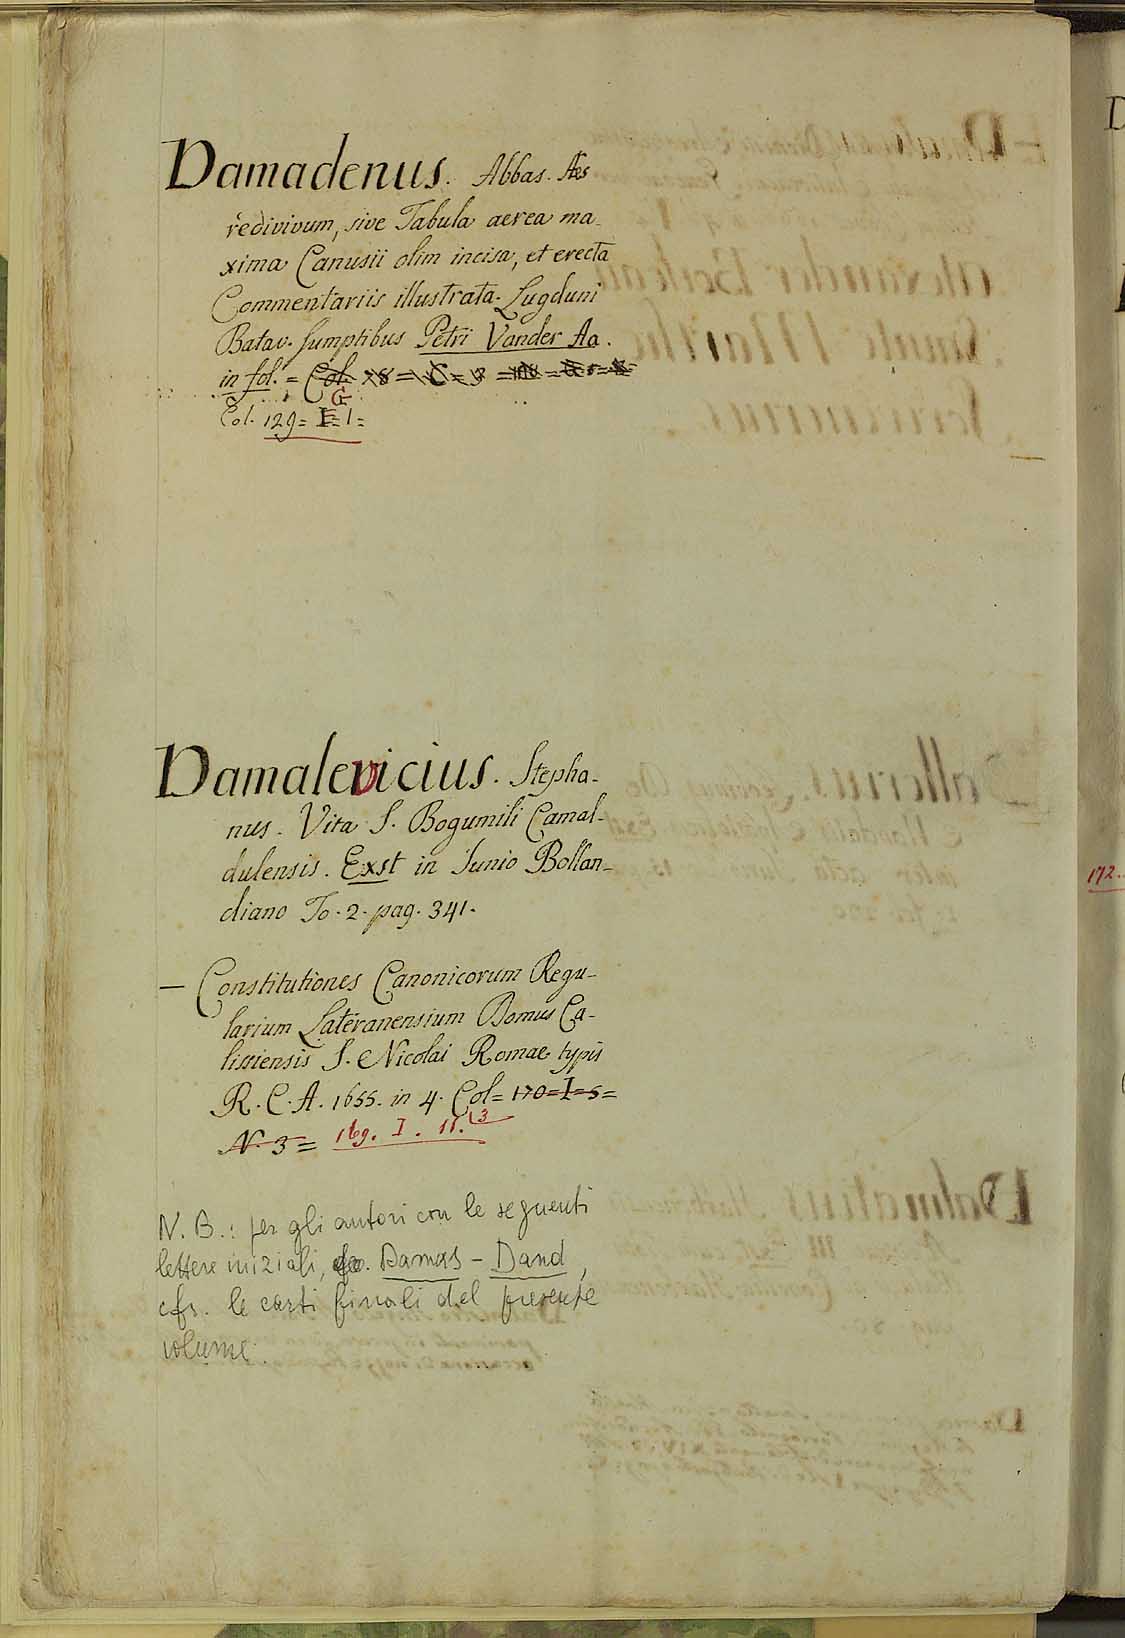 Damadenus. Abbas. Æs
redivivum, sive Tabula aerea ma-
xima Canusii olim incisa, et erecta
Commentariis illustrata. Lugduni
Batav. sumptibus Petri Vander Aa.
in fol. = Col.
G
Col. 129 = E = 1 =
Damalevicius. Stepha-
nus. Vita S. Bogumili Camal-
dulensis. Exst in Junio Bollan-
diano To. 2. pag. 341.
— Constitutiones Canonicorum Regu-
larium Lateranensium Domus Ca-
lissiensis S. Nicolai Romae typis
R. C. A. 1655. in 4. Col = 170 = I = 5 =
N. 3 = 169. I. 11. 3
N. B.: per gli autori con le seguenti
lettere iniziali, Damas - Dand,
cfr. le carti finali del presente
volume.
172.